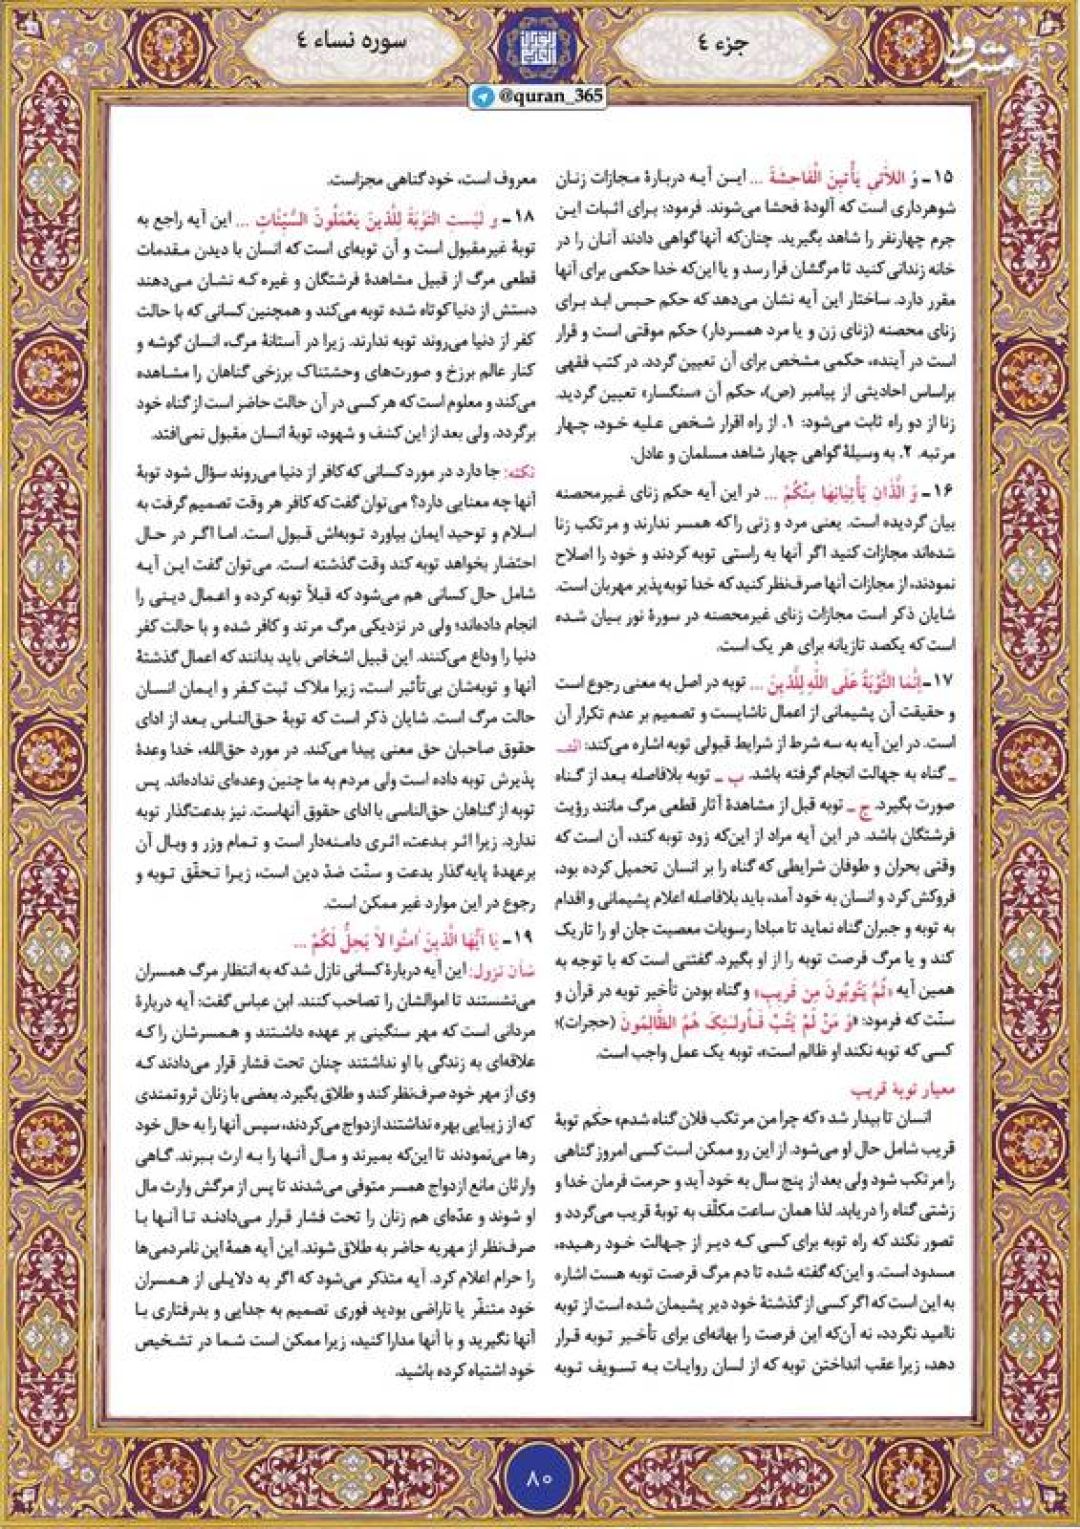 جزء ٤
سوره نساء ٤
@quran_365
۱۵ـ وَ اللاَّتي يَأْتينَ الْفاحِشَةَ ... ایـن آیـه دربارهٔ مـجازات زنـان
شوهرداری است که آلودهٔ فحشا می‌شوند. فرمود: بـرای اثـبات ایـن
جرم چهارنفر را شاهد بگیرید. چنان‌که آنها گواهی دادند آنـان را در
خانه زندانی کنید تا مرگشان فرا رسد و یا این‌که خدا حکمی برای آنها
مقرر دارد. ساختار این آیه نشان می‌دهد که حکم حبس ابـد بـرای
زنای محصنه (زنای زن و یا مرد همسردار) حکم موقتی است و قرار
است در آینده، حکمی مشخص برای آن تعیین گردد. در کتب فقهی
براساس احادیثی از پیامبر (ص)، حکم آن «سنگسار» تعیین گردید.
زنا از دو راه ثابت می‌شود: ۱. از راه اقرار شخص علیه خـود، چـهار
مرتبه. ۲. به وسیلهٔ گواهی چهار شاهد مسلمان و عادل.
۱۶ـ وَ الَّذانِ يَأْتِيانِها مِنْكُمْ ... در این آیه حکم زنای غـیرمحصنه
بیان گردیده است. یعنی مرد و زنی را که همسر ندارند و مرتکب زنا
شده‌اند مجازات کنید اگر آنها به راستی توبه کردند و خود را اصلاح
نمودند، از مجازات آنها صرف‌نظر کنید که خدا توبه‌پذیر مهربان است.
شایان ذکر است مجازات زنای غیرمحصنه در سورهٔ نور بـیان شـده
است که یکصد تازیانه برای هر یک است.
۱۷ـ إِنَّمَا التَّوْبَةُ عَلَى اللهِ لِلَّذينَ ... توبه در اصل به معنی رجوع است
و حقیقت آن پشیمانی از اعمال ناشایست و تصمیم بر عدم تکرار آن
است. در این آیه به سه شرط از شرایط قبولی توبه اشاره می‌کند: الف
ـ گناه به جهالت انجام گرفته باشد. ب ـ توبه بلافاصله بـعد از گـناه
صورت بگیرد. ج ـ توبه قبل از مشاهدهٔ آثار قطعی مرگ مانند رؤیت
فرشتگان باشد. در این آیه مراد از این‌که زود توبه کند، آن است که
وقتی بحران و طوفان شرایطی که گناه را بر انسان تحمیل کرده بود،
فروکش کرد و انسان به خود آمد، باید بلافاصله اعلام پشیمانی و اقدام
به توبه و جبران گناه نماید تا مبادا رسوبات معصیت جان او را تاریک
کند و یا مرگ فرصت توبه را از او بگیرد. گفتنی است که با توجه به
همین آیه «ثُمَّ يَتُوبُونَ مِن قَريبٍ» و گناه بودن تأخیر توبه در قرآن و
سنّت که فرمود: «وَ مَنْ لَمْ يَتُبْ فَأُولئِكَ هُمُ الظَّالِمُونَ (حجرات)؛
کسی که توبه نکند او ظالم است»، توبه یک عمل واجب است.
معیار توبهٔ قریب
انسان تا بیدار شد «که چرا من مرتکب فلان گناه شدم» حکم توبهٔ
قریب شامل حال او می‌شود. از این رو ممکن است کسی امروز گناهی
را مرتکب شود ولی بعد از پنج سال به خود آید و حرمت فرمان خدا و
زشتی گناه را دریابد. لذا همان ساعت مکلّف به توبهٔ قریب می‌گردد و
تصور نکند که راه توبه برای کسی کـه دیـر از جـهالت خـود رهـیده،
مسدود است. و این‌که گفته شده تا دم مرگ فرصت توبه هست اشاره
به این است که اگر کسی از گذشتهٔ خود دیر پشیمان شده است از توبه
ناامید نگردد، نه آن‌که این فرصت را بهانه‌ای برای تأخیر توبه قرار
دهد، زیرا عقب انداختن توبه که از لسان روایات بـه تـسویف تـوبه
معروف است، خود گناهی مجزاست.
۱۸ـ وَ لَيْسَتِ التَّوْبَةُ لِلَّذينَ يَعْمَلُونَ السَّيِّئاتِ ... این آیه راجع به
توبهٔ غیرمقبول است و آن توبه‌ای است که انسان با دیدن مـقدمات
قطعی مرگ از قبیل مشاهدهٔ فرشتگان و غیره کـه نشـان مـی‌دهند
دستش از دنیا کوتاه شده توبه می‌کند و همچنین کسانی که با حالت
کفر از دنیا می‌روند توبه ندارند. زیرا در آستانهٔ مرگ، انسان گوشه و
کنار عالم برزخ و صورت‌های وحشتناک برزخی گناهان را مشـاهده
می‌کند و معلوم است که هر کسی در آن حالت حاضر است از گناه خود
برگردد. ولی بعد از این کشف و شهود، توبهٔ انسان مقبول نمی‌افتد.
نکته: جا دارد در مورد کسانی که کافر از دنیا می‌روند سؤال شود توبهٔ
آنها چه معنایی دارد؟ می‌توان گفت که کافر هر وقت تصمیم گرفت به
اسلام و توحید ایمان بیاورد تـوبه‌اش قـبول است. امـا اگـر در حـال
احتضار بخواهد توبه کند وقت گذشته است. می‌توان گفت ایـن آیـه
شامل حال کسانی هم می‌شود که قبلاً توبه کرده و اعمال دیـنی را
انجام داده‌اند؛ ولی در نزدیکی مرگ مرتد و کافر شده و با حالت کفر
دنیا را وداع می‌کنند. این قبیل اشخاص باید بدانند که اعمال گذشتهٔ
آنها و توبه‌شان بی‌تأثیر است، زیرا ملاک ثبت کـفر و ایـمان انسـان
حالت مرگ است. شایان ذکر است که توبهٔ حق‌الناس بـعد از ادای
حقوق صاحبان حق معنی پیدا می‌کند. در مورد حق‌الله، خدا وعدهٔ
پذیرش توبه داده است ولی مردم به ما چنین وعده‌ای نداده‌اند. پس
توبه از گناهان حق‌الناسی با ادای حقوق آنهاست. نیز بدعت‌گذار توبه
ندارد. زیرا اثـر بـدعت، اثـری دامـنه‌دار است و تـمام وزر و وبـال آن
برعهدهٔ پایه‌گذار بدعت و سنّت ضدّ دین است، زیـرا تـحقّق تـوبه و
رجوع در این موارد غیر ممکن است.
۱۹ـ يا اَيُّهَا الَّذينَ امَنُوا لا يَحِلُّ لَكُمْ ...
شأن نزول: این آیه دربارهٔ کسانی نازل شد که به انتظار مرگ همسران
می‌نشستند تا اموالشان را تصاحب کنند. ابن عباس گفت: آیه دربارهٔ
مردانی است که مهر سنگینی بر عهده داشتند و همسرشان را کـه
علاقه‌ای به زندگی با او نداشتند چنان تحت فشار قرار می‌دادند کـه
وی از مهر خود صرف‌نظر کند و طلاق بگیرد. بعضی با زنان ثروتمندی
که از زیبایی بهره نداشتند ازدواج می‌کردند، سپس آنها را به حال خود
رها می‌نمودند تا این‌که بمیرند و مـال آنـها را بـه ارث بـبرند. گـاهی
وارثان مانع ازدواج همسر متوفی می‌شدند تا پس از مرگش وارث مال
او شوند و عدّه‌ای هم زنان را تحت فشار قـرار مـی‌دادنـد تـا آنـها بـا
صرف‌نظر از مهریه حاضر به طلاق شوند. این آیه همهٔ این نامردمی‌ها
را حرام اعلام کرد. آیه متذکر می‌شود که اگر به دلایلی از هـمسران
خود متنفّر یا ناراضی بودید فوری تصمیم به جدایی و بدرفتاری بـا
آنها نگیرید و با آنها مدارا کنید، زیرا ممکن است شـما در تشـخیص
خود اشتباه کرده باشید.
۸۰